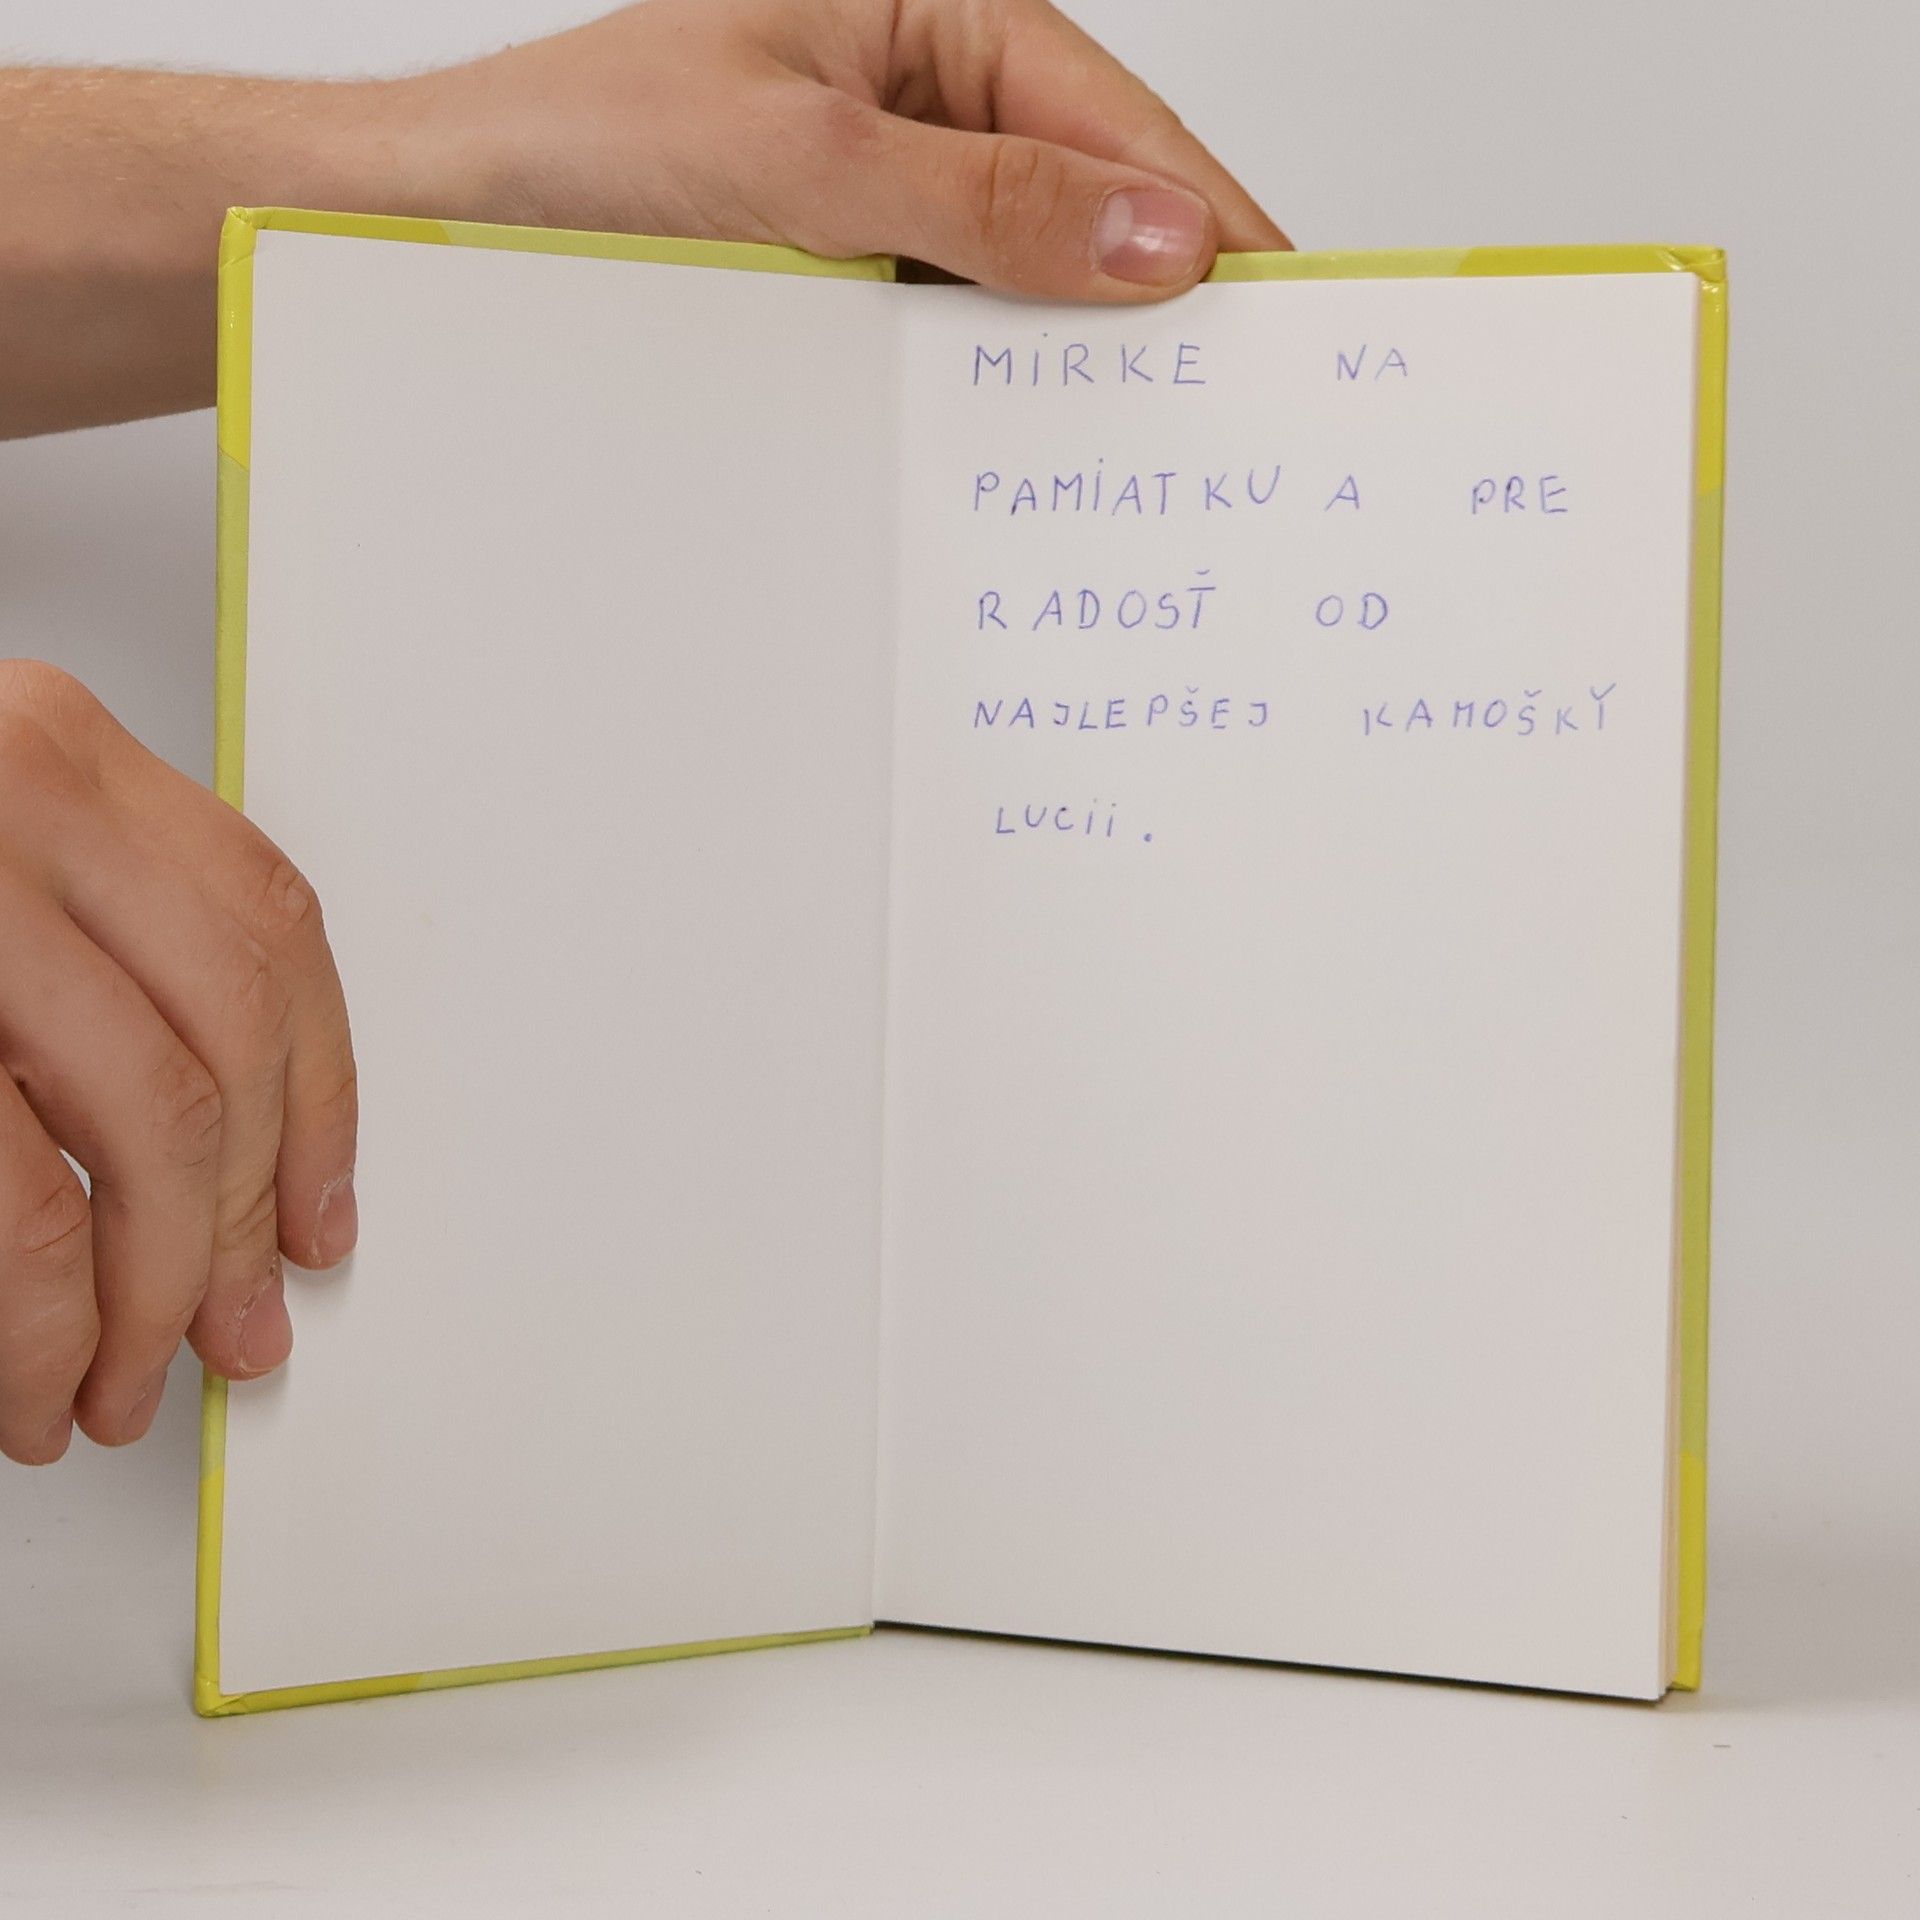 MiRKE NA
PAMiATKU A PRE
RADOSŤ OD
NAJLEPŠEJ KAMOŠKY
LUCii.